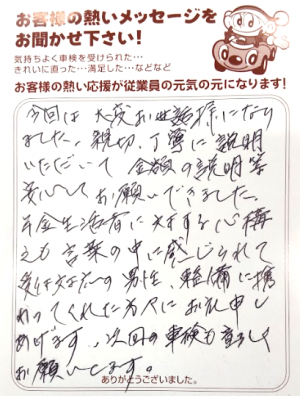 お客様の熱いメッセージを
お聞かせ下さい!
気持ちよく車検を受けられた…
きれいに直った…満足した…などなど
お客様の熱い応援が従業員の元気の元になります!
今回は大変お世話様になり
ました。親切、丁寧に説明
いただいて金額の説明等
安心してお願いできました。
年金生活者に対する心構
えも言葉の中に感じられて
受付の男性、整備に携
わってくれた方々にお礼申し
あげます。次回の車検も宜しく
お願いします。
ありがとうございました。